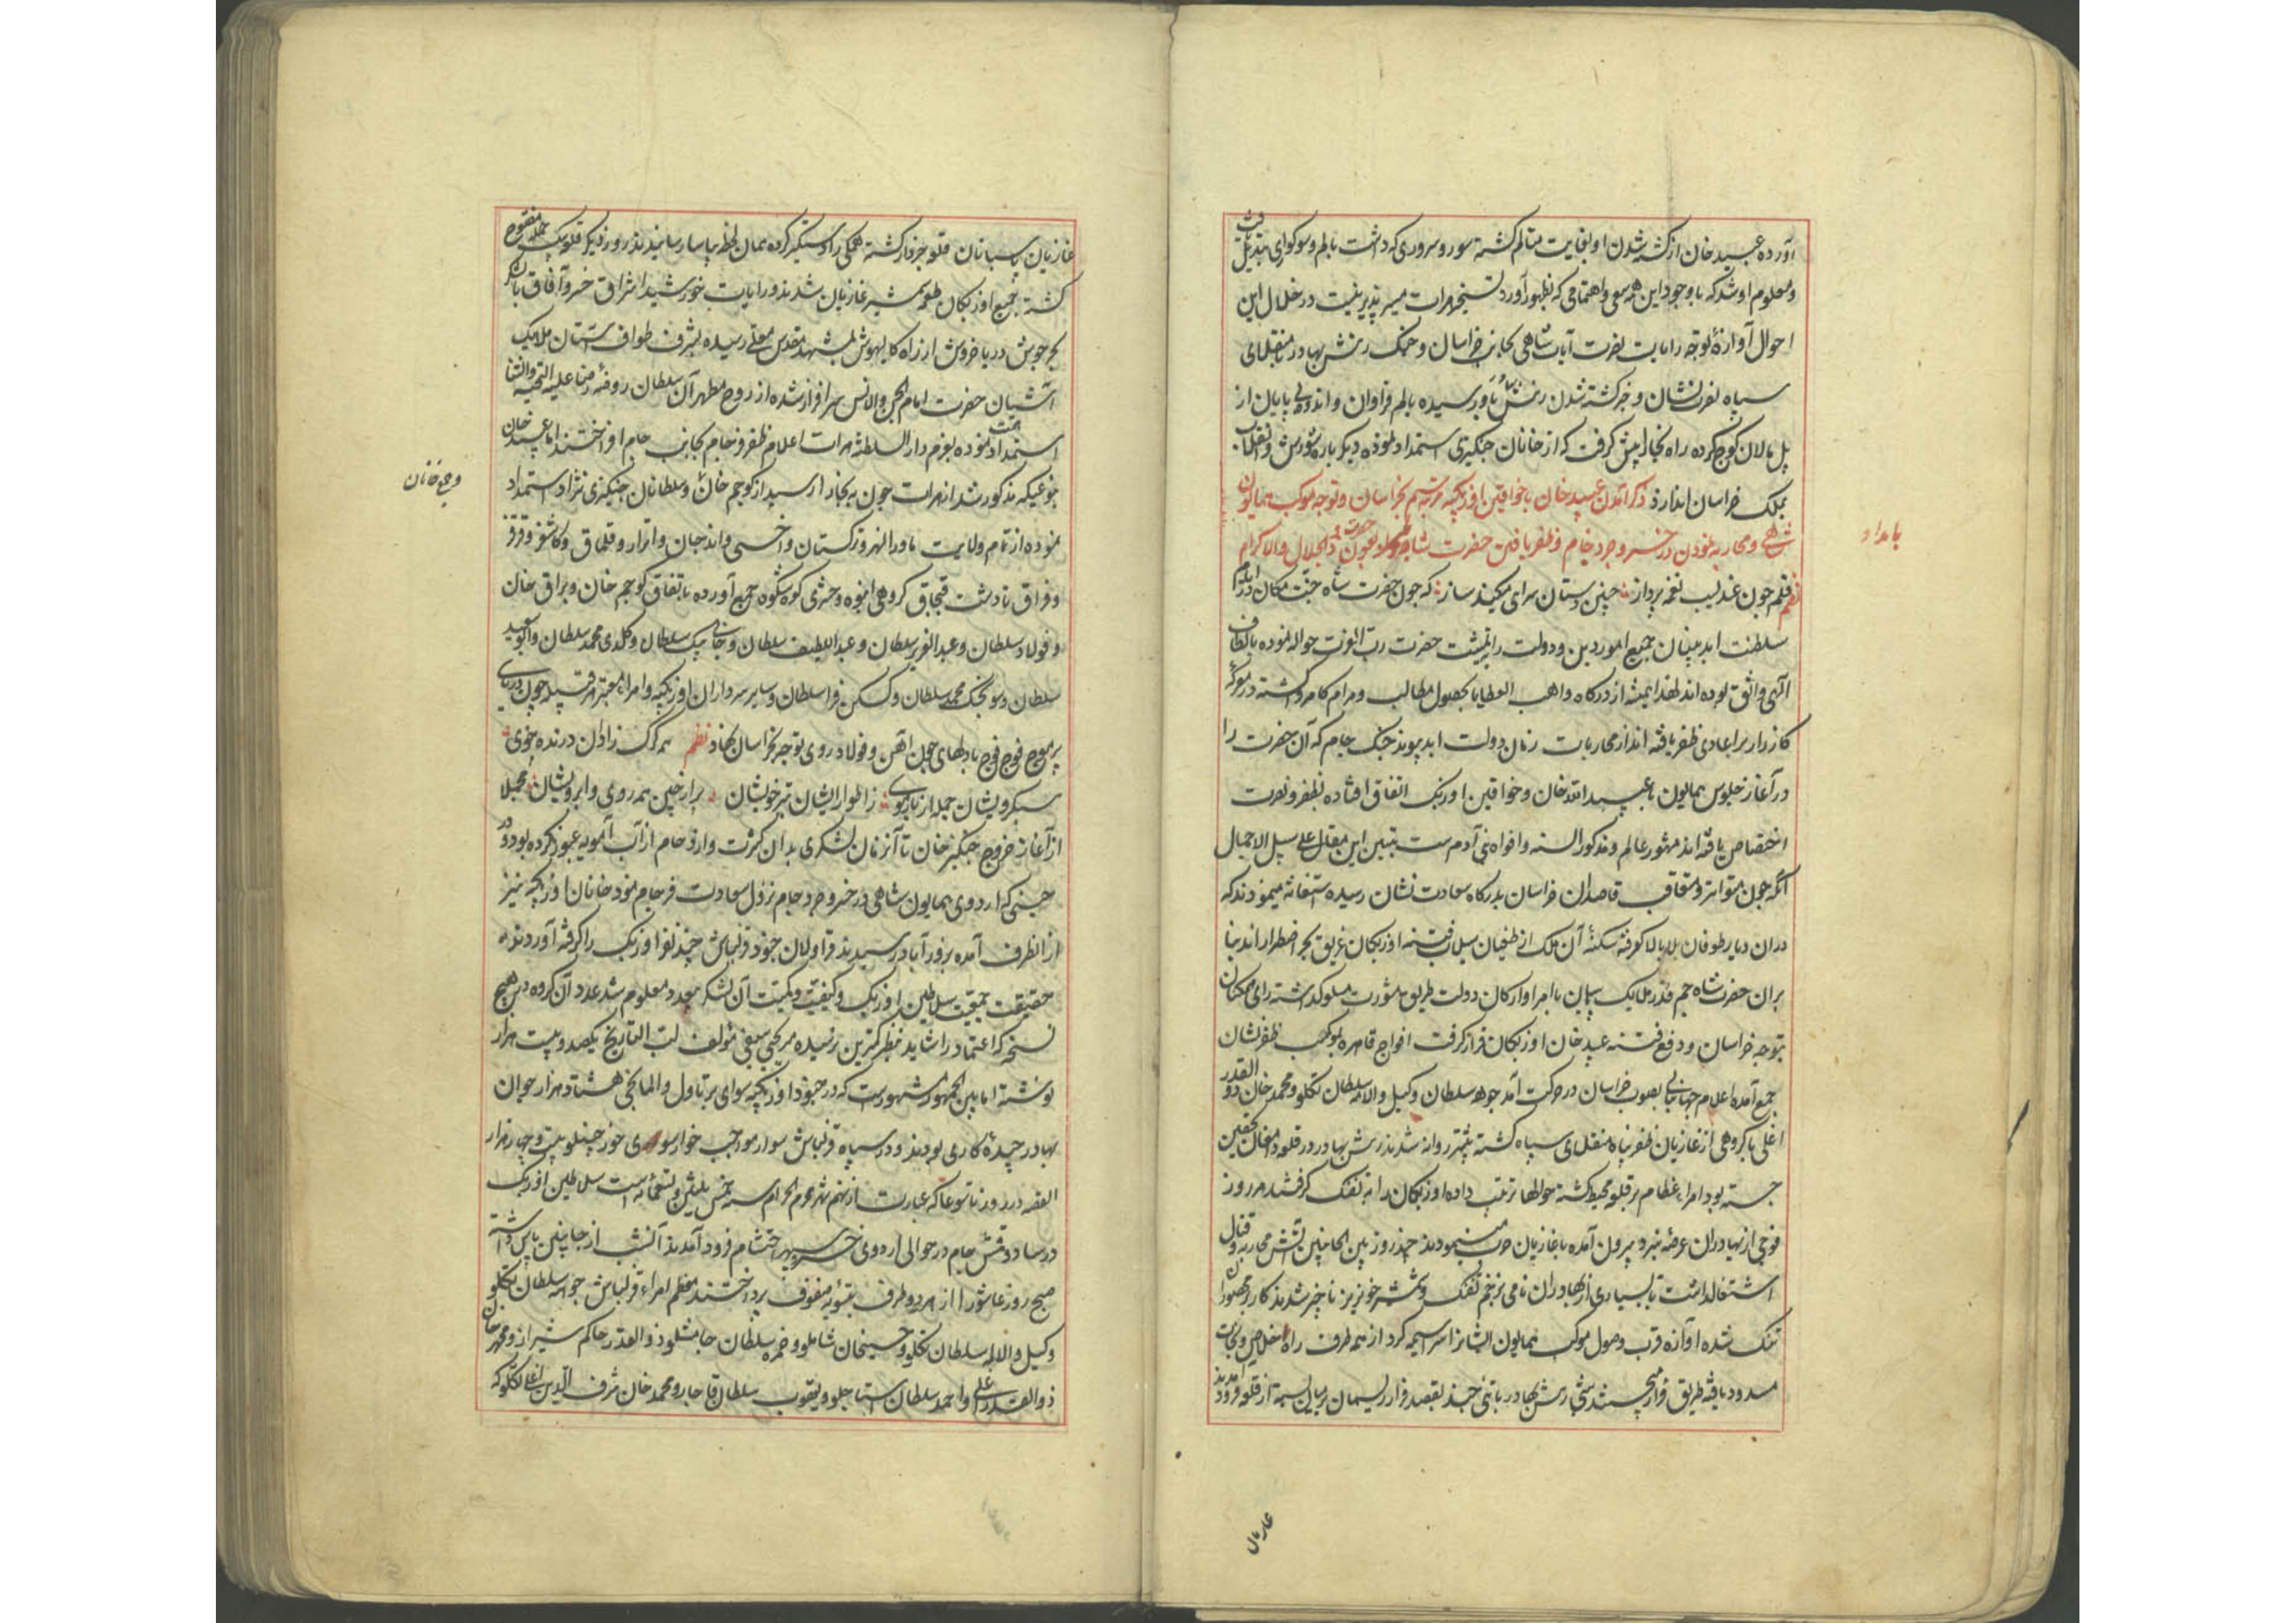 آورده عبید خان از کشته شدن او بغایت متالم گشته سور و سروری که داشت بالم و سوکواری تبدیل یافت
و معلوم او شد که با وجود این همه سعی و اهتمامی که بظهور آورد تسخیر هرات میسر پذیر نیست در خلال این
احوال آوازهٔ توجه رایات نصرت آیات شاهی بجانب خراسان و جنک رنش بهادر با منقلای
سپاه نصرت نشان و خبر کشته شدن رنش بهادر باو رسیده بالم فراوان و اندوه بی پایان از
پل مالان کوچ کرده راه بخارا پیش گرفت که از خانان چنکیزی استمداد نموده دیکر باره شورش و انقلاب
بملک خراسان اندازد ذکر آمدن عبید خان با خواقین اوزبکیه مرتبه سیم بخراسان و توجه موکب همایون
شاهی و محاربه نمودن در خسرو جرد جام و ظفر یافتن حضرت شاه بعون حضرت ذالجلال والاکرام
نظم قلم چون عندلیب نغمه پرداز چنین دستان سرای میکند ساز که چون حضرت شاه جنت مکان در ایام
سلطنت ابد بنیان جمیع امور دین و دولت را بمشیت حضرت رب العزت حواله نموده بالطاف
الهی واثق بوده اند لهذا همیشه از درگاه واهب العطایا بحصول مطالب و مرام کامروا گشته در معرکه
کارزار بر اعادی ظفر یافته اند از محاربات زمان دولت ابد پیوند جنک جام که آن حضرت را
در آغاز جلوس همایون با عبید الله خان و خواقین اوزبک اتفاق افتاده بظفر و نصرت
اختصاص یافته اند مشهور عالم و مذکور السنه و افواه بنی آدم ست تبیین این مقال علی سبیل الاجمال
آنکه چون متواتر و متعاقب قاصدان خراسان بدرکاه سعادت نشان رسیده استغاثه مینمودند که
دران دیار طوفان بلا بالا گرفته سکنهٔ آن ملک از طغیان سیل فتنه اوزبکان غریق بحر اضطرار اند بنا
بران حضرت شاه جم قدر ملایک سپاه با امرا و ارکان دولت طریق مشورت مسلوک داشته رای همکنان
بتوجه خراسان و دفع فتنه عبید خان اوزبکان قرار گرفت افواج قاهره بموکب ظفر نشان
جمع آمده اعلام جهانگشایی بصوب خراسان در حرکت آمد جوهه سلطان وکیل و المه سلطان تکلو و محمد خان ذو القدر
اغلی با گروهی از غازیان ظفر پناه منقلای سپاه گشته پیشتر روانه شدند رنش بهادر در قلعه دامغان تحصین
جسته بود امراء عظام بر قلعه محیط گشته حوالها ترتیب داده اوزبکان را به تفنک گرفتند هر روز
فوجی از بهادران عرصه نبرد بیرون آمده با غازیان حرب مینمودند چند روز بین الجانبین آتش محاربه و قتال
اشتعال داشت تا بسیاری از بهادران نامی بزخم تفنک و شمشیر خونریز ناچیز شدند کار بر محصوران
تنک شده آوازه قرب وصول موکب همایون ایشانرا سراسیمه کرد از همه طرف راه خلاص و نجات
مسدود یافته طریق فرار می جستند شبی رنش بهادر با تنی چند بقصد فرار ریسمان بر میان بسته از قلعه فرود آمدند
بامداد
غازیان
غازیان پاسبانان قلعه خبردار گشته همگی را دستگیر کرده همان لحظه بیاسا رسانیدند روز دیگر قلعه یک جمله مفتوح
گشته جمیع اوزبکان طعمه شمشیر غازیان شدند و رایات خورشید اشراق خسرو آفاق با لشکر
بحر جوش دریا خروش از راه کالپوش بمشهد مقدس معلی رسیده بشرف طواف آستان ملایک
آشیان حضرت امام الجن والانس سرافراز شده از روح مطهر آن سلطان روضه رضا علیه التحیه والثنا
استمداد همت نموده بعزم دار السلطنه هرات اعلام ظفر فرجام بجانب جام افراختند اما عبید خان
بنوعیکه مذکور شد از هرات چون به بخارا رسید از کوچم خان و سلطانان چنکیزی نژاد استمداد
نموده از تمام ولایت ماوراالنهر و ترکستان و اخسی و اندجان و اترار و قلماق و کاشغر و قرقز
و قزاق تا دشت قبچاق گروهی انبوه و حشری کوه شکوه جمع آورده باتفاق کوچم خان و براق خان
و فولاد سلطان و عبد العزیز سلطان و عبد اللطیف سلطان و جانی بیک سلطان و کلدی محمد سلطان و ابو سعید
سلطان و سونجک محمد سلطان و کسکن قرا سلطان و سایر سرداران اوزبکیه و امراء معتبر هر قبیله چون دریای
پر موج فوج فوج با دلهای چون آهن و فولاد روی توجه بخراسان نهاد نظم همه گرگ زادان درنده خوی
سبکرو بشان جمله از باد موی ز اطوار ایشان تبر خویشان پر از چین همه روی و ابرویشان مجملا
از آغاز خروج چنکیز خان تا آن زمان لشکری بدان کثرت و ازدحام از آب آمویه عبور نکرده بود و در
حینی که اردوی همایون شاهی در خسرو جرد جام نزول سعادت فرجام نمود خانان اوزبکیه نیز
از انطرف آمده بزورآباد رسیدند قراولان جنود قزلباش چند نفر اوزبک را گرفته آوردند
حقیقت جمعیت سلاطین اوزبک و کیفیت و کمیت آن لشکر بیعدد معلوم شد عدد آن گروه در هیچ
نسخه که اعتماد را شاید بنظر کمترین نرسیده میر یحیی سیفی مؤلف لب التاریخ یکصد و بیست هزار
نوشته اما بین الجمهور مشهورست که در جنود اوزبکیه سوای پرتاول و المانچی هشتاد هزار جوان
بهادر چیدهٔ کاری بودند و در سپاه قزلباش سوار مواجب خوار سوای خورچینلو بیست و چهار هزار
القصه در روز تاسوعا که عبارت از نهم شهر محرم الحرام سنه خمس ثلثین و تسعمائه است سلاطین اوزبک
در ساروقمش جام در حوالی اردوی خسرو سپهر احتشام فرود آمدند آنشب از جانبین پاس داشته
صبح روز عاشورا از هر دو طرف بتسویه صفوف پرداختند معظم امراء قزلباش جوهه سلطان تکلو
وکیل و المه سلطان تکلو و حسینخان شاملو و حمزه سلطان جامشلو ذوالقدر حاکم شیراز و محمد خان
ذوالقدر اغلی و احمد سلطان استاجلو و یعقوب سلطان قاجار و محمد خان شرف الدین اغلی تکلو که